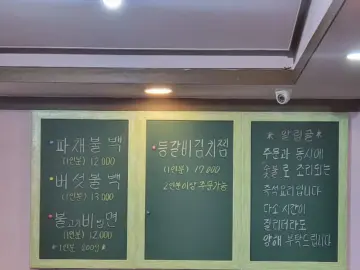 * 파채불백
(1인분) 12,000
* 버섯불백
(1인분) 13,000
* 불고기비빔면
(1인분) 12,000
* 1인분 200g *
* 등갈비김치찜
(1인분) 17,000
2인분이상 주문가능
* 알림글 *
주문과 동시에
숯불로 조리되는
즉석요리입니다
다소 시간이
걸리더라도
양해 부탁드립니다